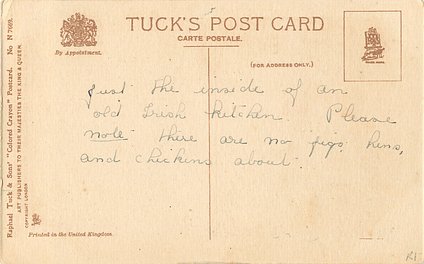 TUCK'S POST CARD
CARTE POSTALE.
By Appointment.
(FOR ADDRESS ONLY.)
Just the inside of an
old Irish Kitchen. Please
note there are no pigs, hens,
and chickins about.
Raphael Tuck & Sons' "Colored Crayon" Postcard. No. N 7669.
ART PUBLISHERS TO THEIR MAJESTIES THE KING & QUEEN.
COPYRIGHT LONDON
Printed in the United Kingdom.